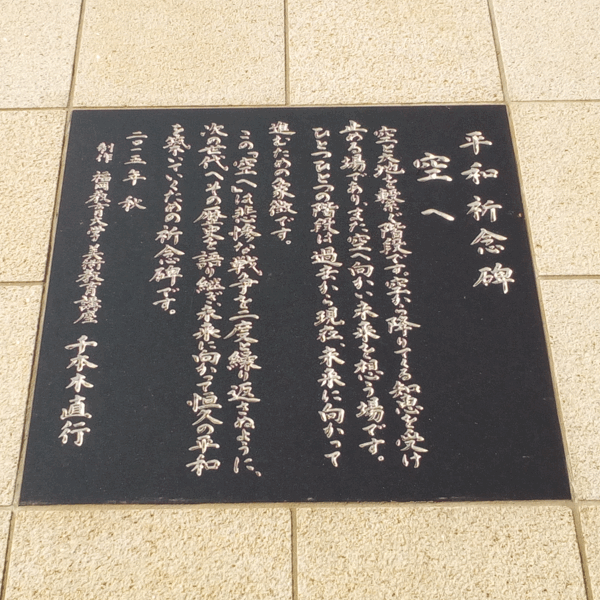 平和祈念碑
空へ
空と大地を繋ぐ階段です。空から降りてくる知恵を受け
止める場であり、また空へ向かい未来を想う場です。
ひとつひとつの階段は過去から現在、未来に向かって
進むための象徴です。
この「空へ」は悲惨な戦争を二度と繰り返さぬように、
次の世代へその歴史を語り継ぎ未来に向かって恒久の平和
を築いていくための祈念碑です。
二〇一五年 秋
制作 福岡教育大学 美術教育講座 千本木直行